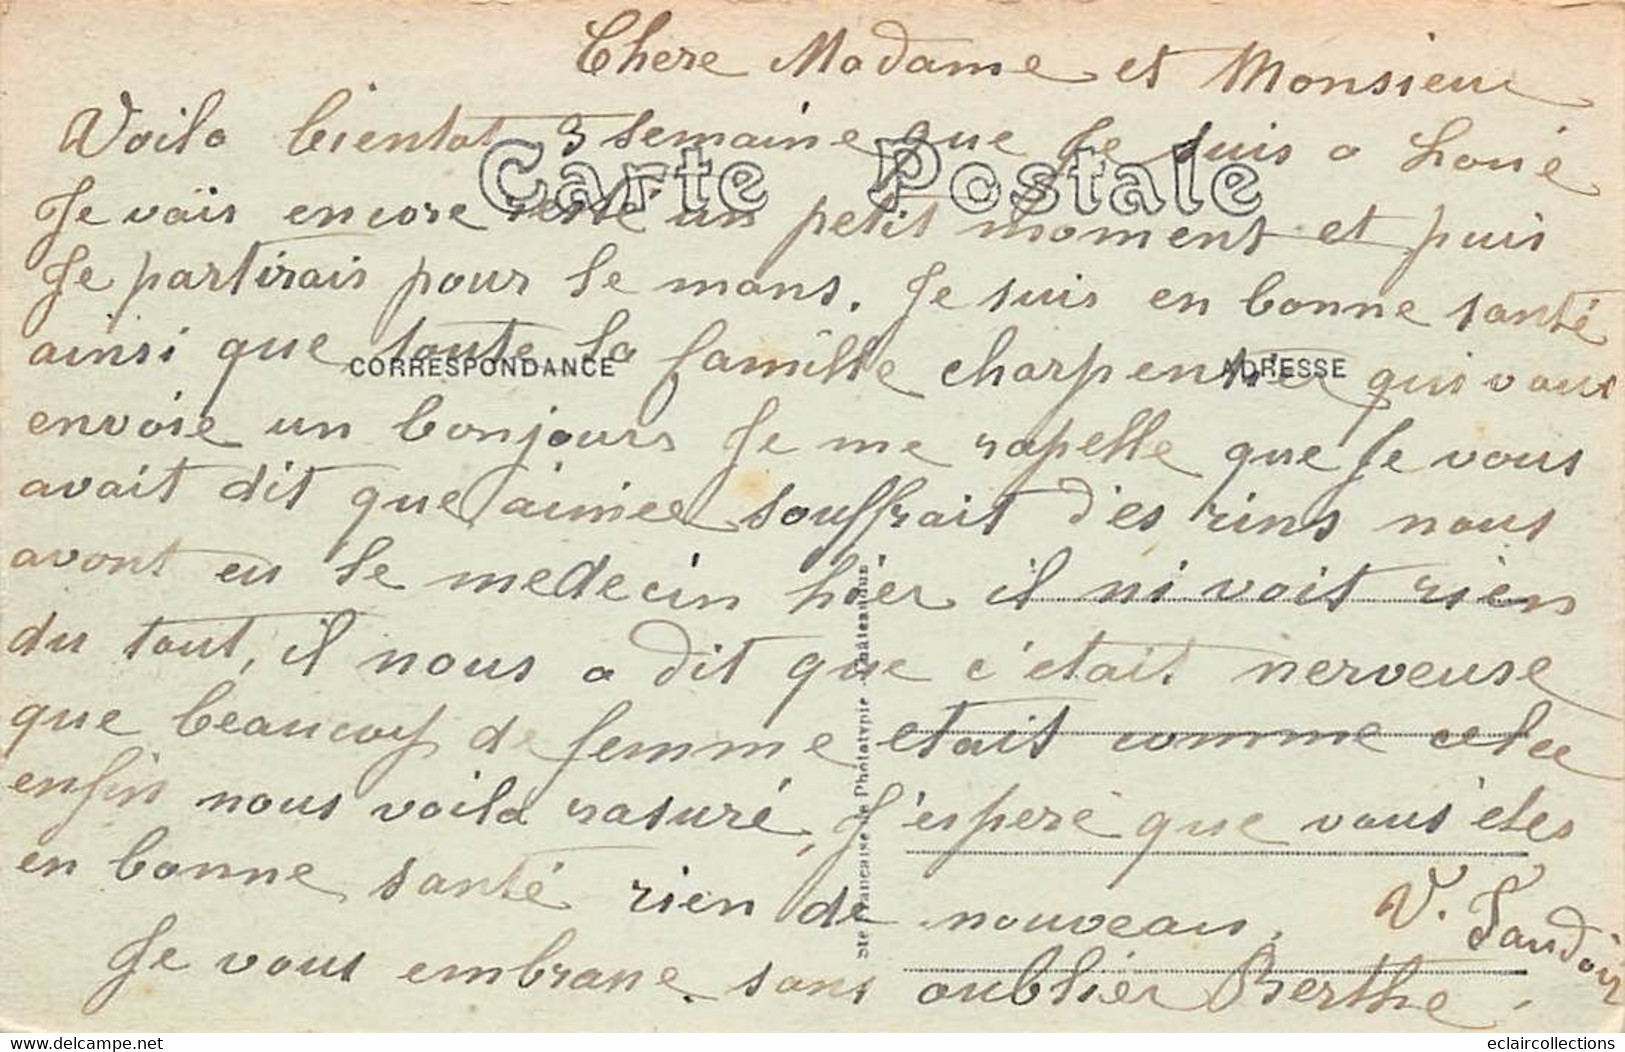 Chere Madame et Monsieur
Voila bientot 3 semaine que Je suis a Loué
Carte Postale
Je vais encore resté un petit moment et puis
Je partirais pour le mans. Je suis en bonne santé
ainsi que toute la famille charpentier qui vous
CORRESPONDANCE ADRESSE
envoie un bonjours Je me rapelle que Je vous
avait dit que aimée souffrait des rins nous
avont eu le medecin hier il ni voit rien
du tout, il nous a dit que c'etait nerveuse
que beaucoup de femme etait comme cela
enfin nous voila rasuré, J'espere que vous etes
en bonne santé rien de nouveau, V.
Je vous embrase sans oublier Berthe.
Sté Française de Phototypie - Châteaudun
delcampe.net
eclaircollections